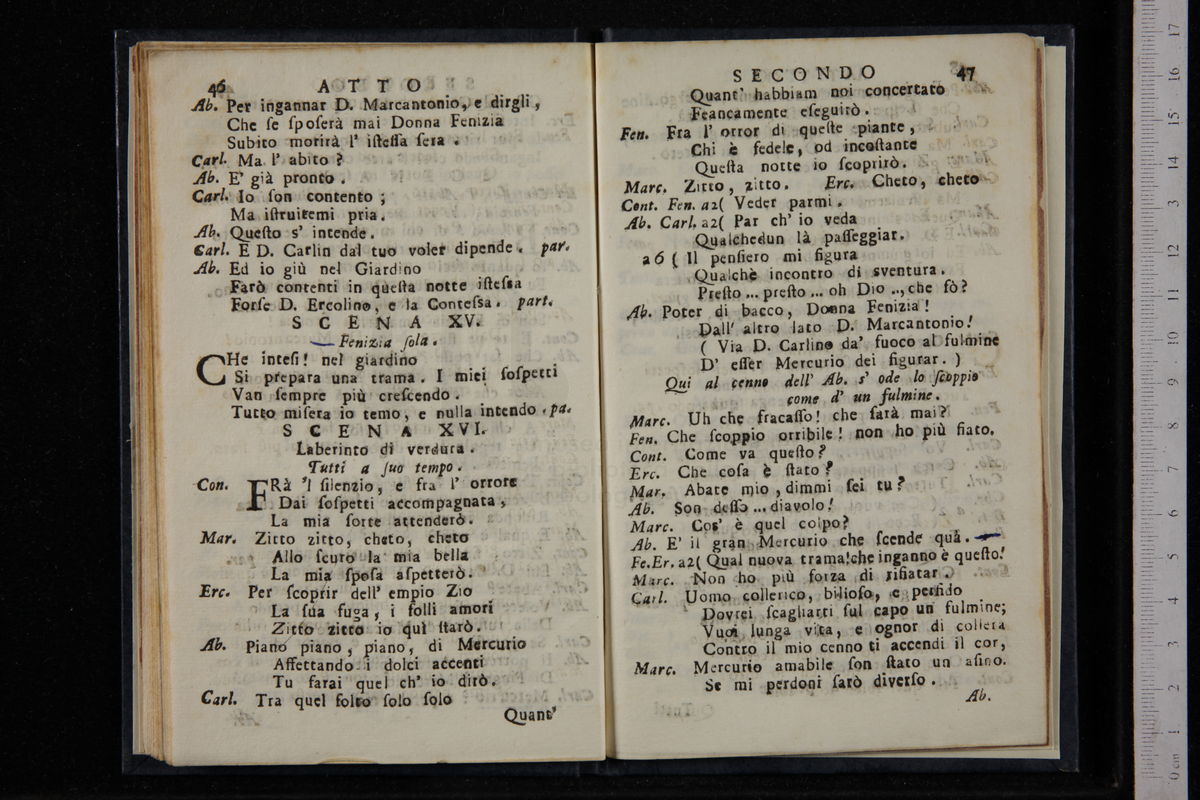 46 ATTO
Ab. Per ingannar D. Marcantonio, e dirgli,
Che ſe ſpoſerà mai Donna Fenizia
Subito morirà l' iſteſſa ſera.
Carl. Ma l' abito?
Ab. E' già pronto.
Carl. Io ſon contento;
Ma iſtruitemi pria.
Ab. Queſto s' intende.
Carl. E D. Carlin dal tuo voler dipende. par.
Ab. Ed io giù nel Giardino
Farò contenti in queſta notte iſteſsa
Forſe D. Ercolino, e la Conteſsa. part.
SCENA XV.
Fenizia ſola.
CHe inteſi! nel giardino
Si prepara una trama. I miei ſoſpetti
Van ſempre più creſcendo.
Tutto miſera io temo, e nulla intendo. pa.
SCENA XVI.
Laberinto di verdura.
Tutti a ſuo tempo.
Con. FRà 'l ſilenzio, e fra l' orrore
Dai ſoſpetti accompagnata,
La mia ſorte attenderò.
Mar. Zitto zitto, cheto, cheto
Allo ſcuro la mia bella
La mia ſpoſa aſpetterò.
Erc. Per ſcoprir dell' empio Zio
La ſua fuga, i folli amori
Zitto zitto io quì ſtarò.
Ab. Piano piano, piano, di Mercurio
Affettando i dolci accenti
Tu farai quel ch' io dirò.
Carl. Tra quel folto ſolo ſolo
Quant'
SECONDO 47
Quant' habbiam noi concertato
Feancamente eſeguirò.
Fen. Fra l' orror di queſte piante,
Chi è fedele, od incoſtante
Queſta notte io ſcoprirò.
Marc. Zitto, zitto. Erc. Cheto, cheto
Cont. Fen. a2( Veder parmi.
Ab. Carl. a2( Par ch' io veda
Qualchedun là paſſeggiar.
a6 ( Il penſiero mi figura
Qualchè incontro di sventura.
Preſto ... preſto ... oh Dio .., che fò?
Ab. Poter di bacco, Donna Fenizia!
Dall' altro lato D. Marcantonio!
( Via D. Carlino da' fuoco al fulmine
D' eſſer Mercurio dei figurar. )
Qui al cenno dell' Ab. s' ode lo ſcoppio
come d' un fulmine.
Marc. Uh che fracaſſo! che ſarà mai?
Fen. Che ſcoppio orribile! non ho più fiato.
Cont. Come va queſto?
Erc. Che coſa è ſtato?
Mar. Abate mio, dimmi ſei tu?
Ab. Son deſſo ... diavolo!
Marc. Cos' è quel colpo?
Ab. E' il gran Mercurio che ſcende quà.
Fe.Er. a2( Qual nuova trama!che inganno è queſto!
Marc. Non ho più forza di rifiatar.
Carl. Uomo collerico, bilioſo, e perfido
Dovrei ſcagliarti ſul capo un fulmine;
Vuoi lunga vita, e ognor di collera
Contro il mio cenno ti accendi il cor,
Marc. Mercurio amabile ſon ſtato un aſino.
Se mi perdoni ſarò diverſo.
Ab.
17
16
15
14
13
12
11
10
9
8
7
6
5
4
3
2
1
0 cm